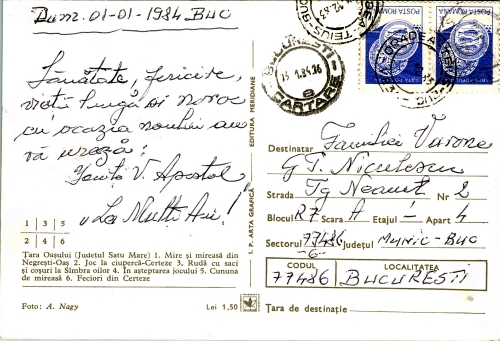 Dum. 01-01-1984 BUC
Sănătate, fericire,
vieți lungă și noroc
cu ocazia noului an
vă urează:
V. Apostol
"La Mulți Ani!"
1 3 5
2 4 6
Țara Oașului (Județul Satu Mare) 1. Mire și mireasă din
Negrești-Oaș 2. Joc la ciupercă-Certeze 3. Rudă cu saci
și coșuri la Sîmbra oilor 4. În așteptarea jocului 5. Cununa
de mireasă 6. Feciori din Certeze
Foto: A. Nagy
Lei 1,50
I. P. ARTA GRAFICĂ
EDITURA MERIDIANE
POSTA ROMANA
POSTA ROMANA
BUCUREȘTI
1.84.16
8
CARTARE
Destinatar Familiei
G. T. Niculescu
Strada Tg Neamț Nr 2
Blocul R7 Scara A Etajul - Apart 4
Sectorul 77486 Județul MUNIC-BUC
-6-
CODUL LOCALITATEA
77486 BUCUREȘTI
Țara de destinație